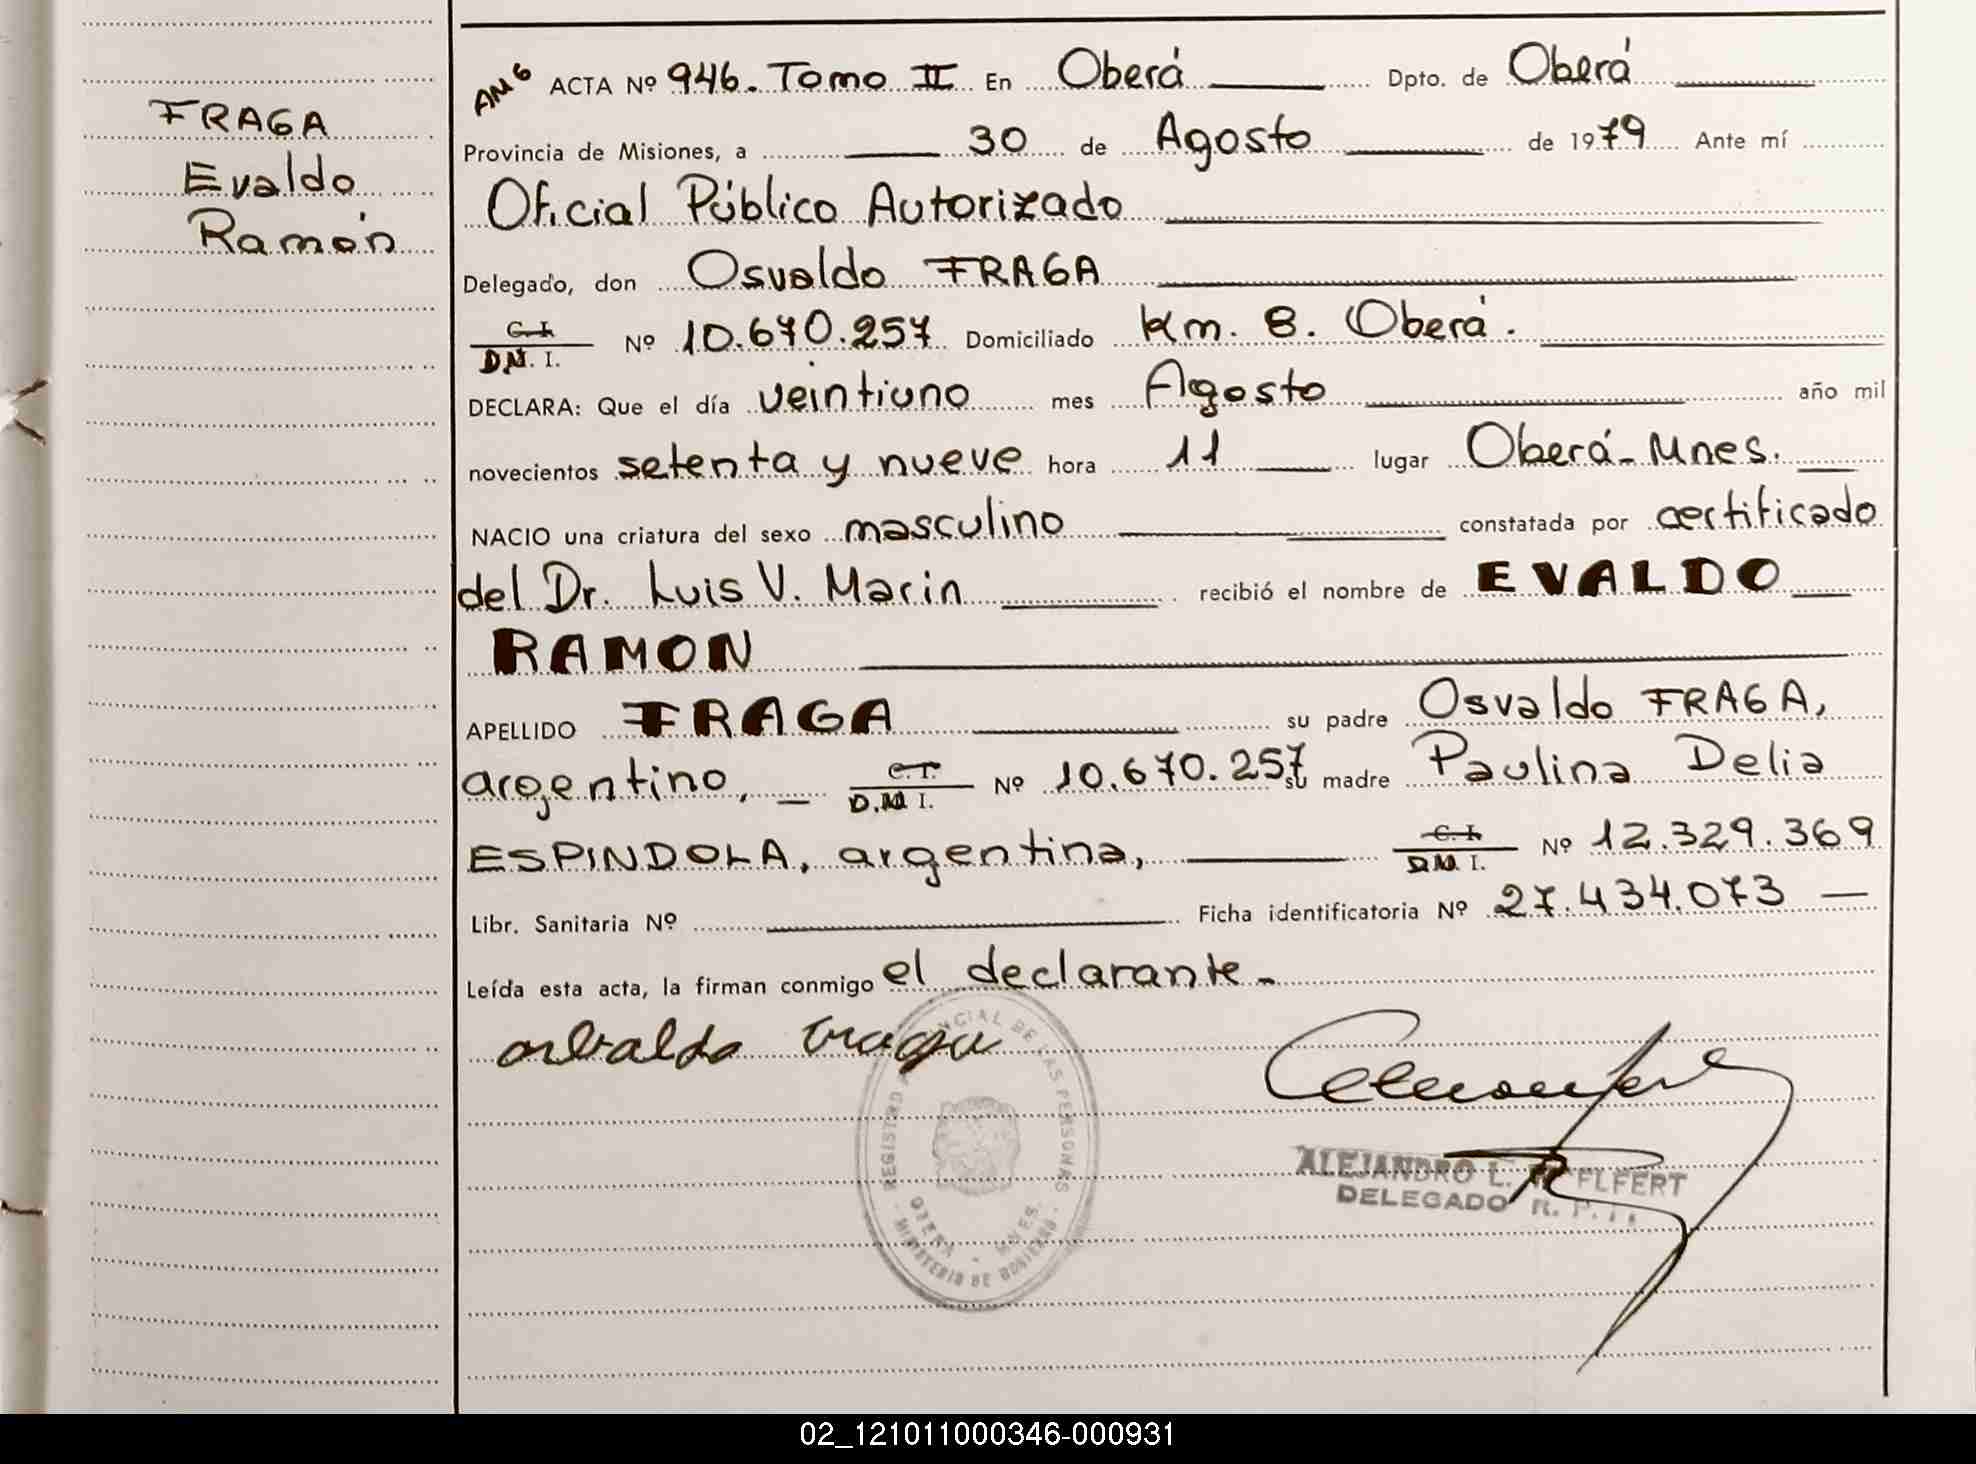 FRAGA
Evaldo
Ramón
AN6 ACTA Nº 946. Tomo II En Oberá Dpto. de Oberá
Provincia de Misiones, a 30 de Agosto de 1979 Ante mí
Oficial Público Autorizado
Delegado, don Osvaldo FRAGA
C.I. D.N.I. Nº 10.670.257 Domiciliado Km. 8. Oberá.
DECLARA: Que el día veintiuno mes Agosto año mil
novecientos setenta y nueve hora 11 lugar Oberá-Mnes.
NACIO una criatura del sexo masculino constatada por certificado
del Dr. Luis V. Marin recibió el nombre de EVALDO
RAMON
APELLIDO FRAGA su padre Osvaldo FRAGA,
argentino, C.I. D.N.I. Nº 10.670.257 su madre Paulina Delia
ESPINDOLA, argentina, C.I. D.N.I. Nº 12.329.369
Libr. Sanitaria Nº Ficha identificatoria Nº 27.434.073
Leída esta acta, la firman conmigo el declarante.
osbaldo Fraga
REGISTRO PROVINCIAL DE LAS PERSONAS
OBERA - MNES.
MINISTERIO DE GOBIERNO
ALEJANDRO L.
DELEGADO R. P. P.
02_121011000346-000931